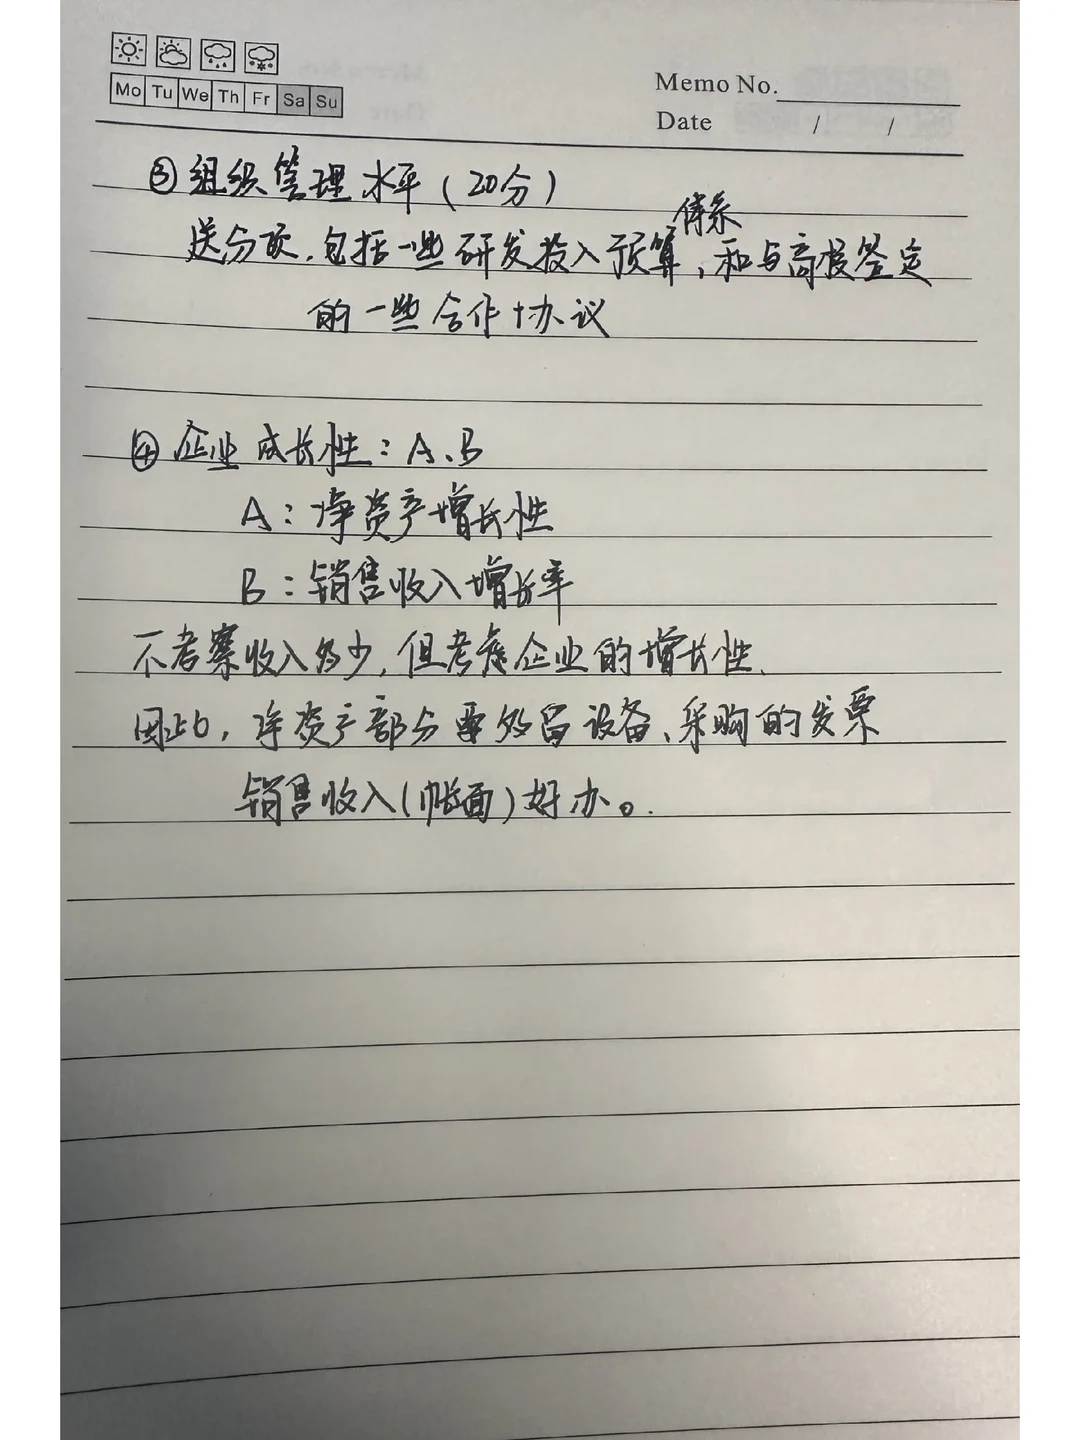 Mo Tu We Th Fr Sa Su
Memo No.
Date / /
③组织管理水平(20分)
体系
送分项,包括一些研发投入预算,和与高校签定
的一些合作协议
④企业成长性:A、B
A:净资产增长性
B:销售收入增长率
不考察收入多少,但考虑企业的增长性.
因此,净资产部分要多留设备、采购的发票
销售收入(帐面)好办。